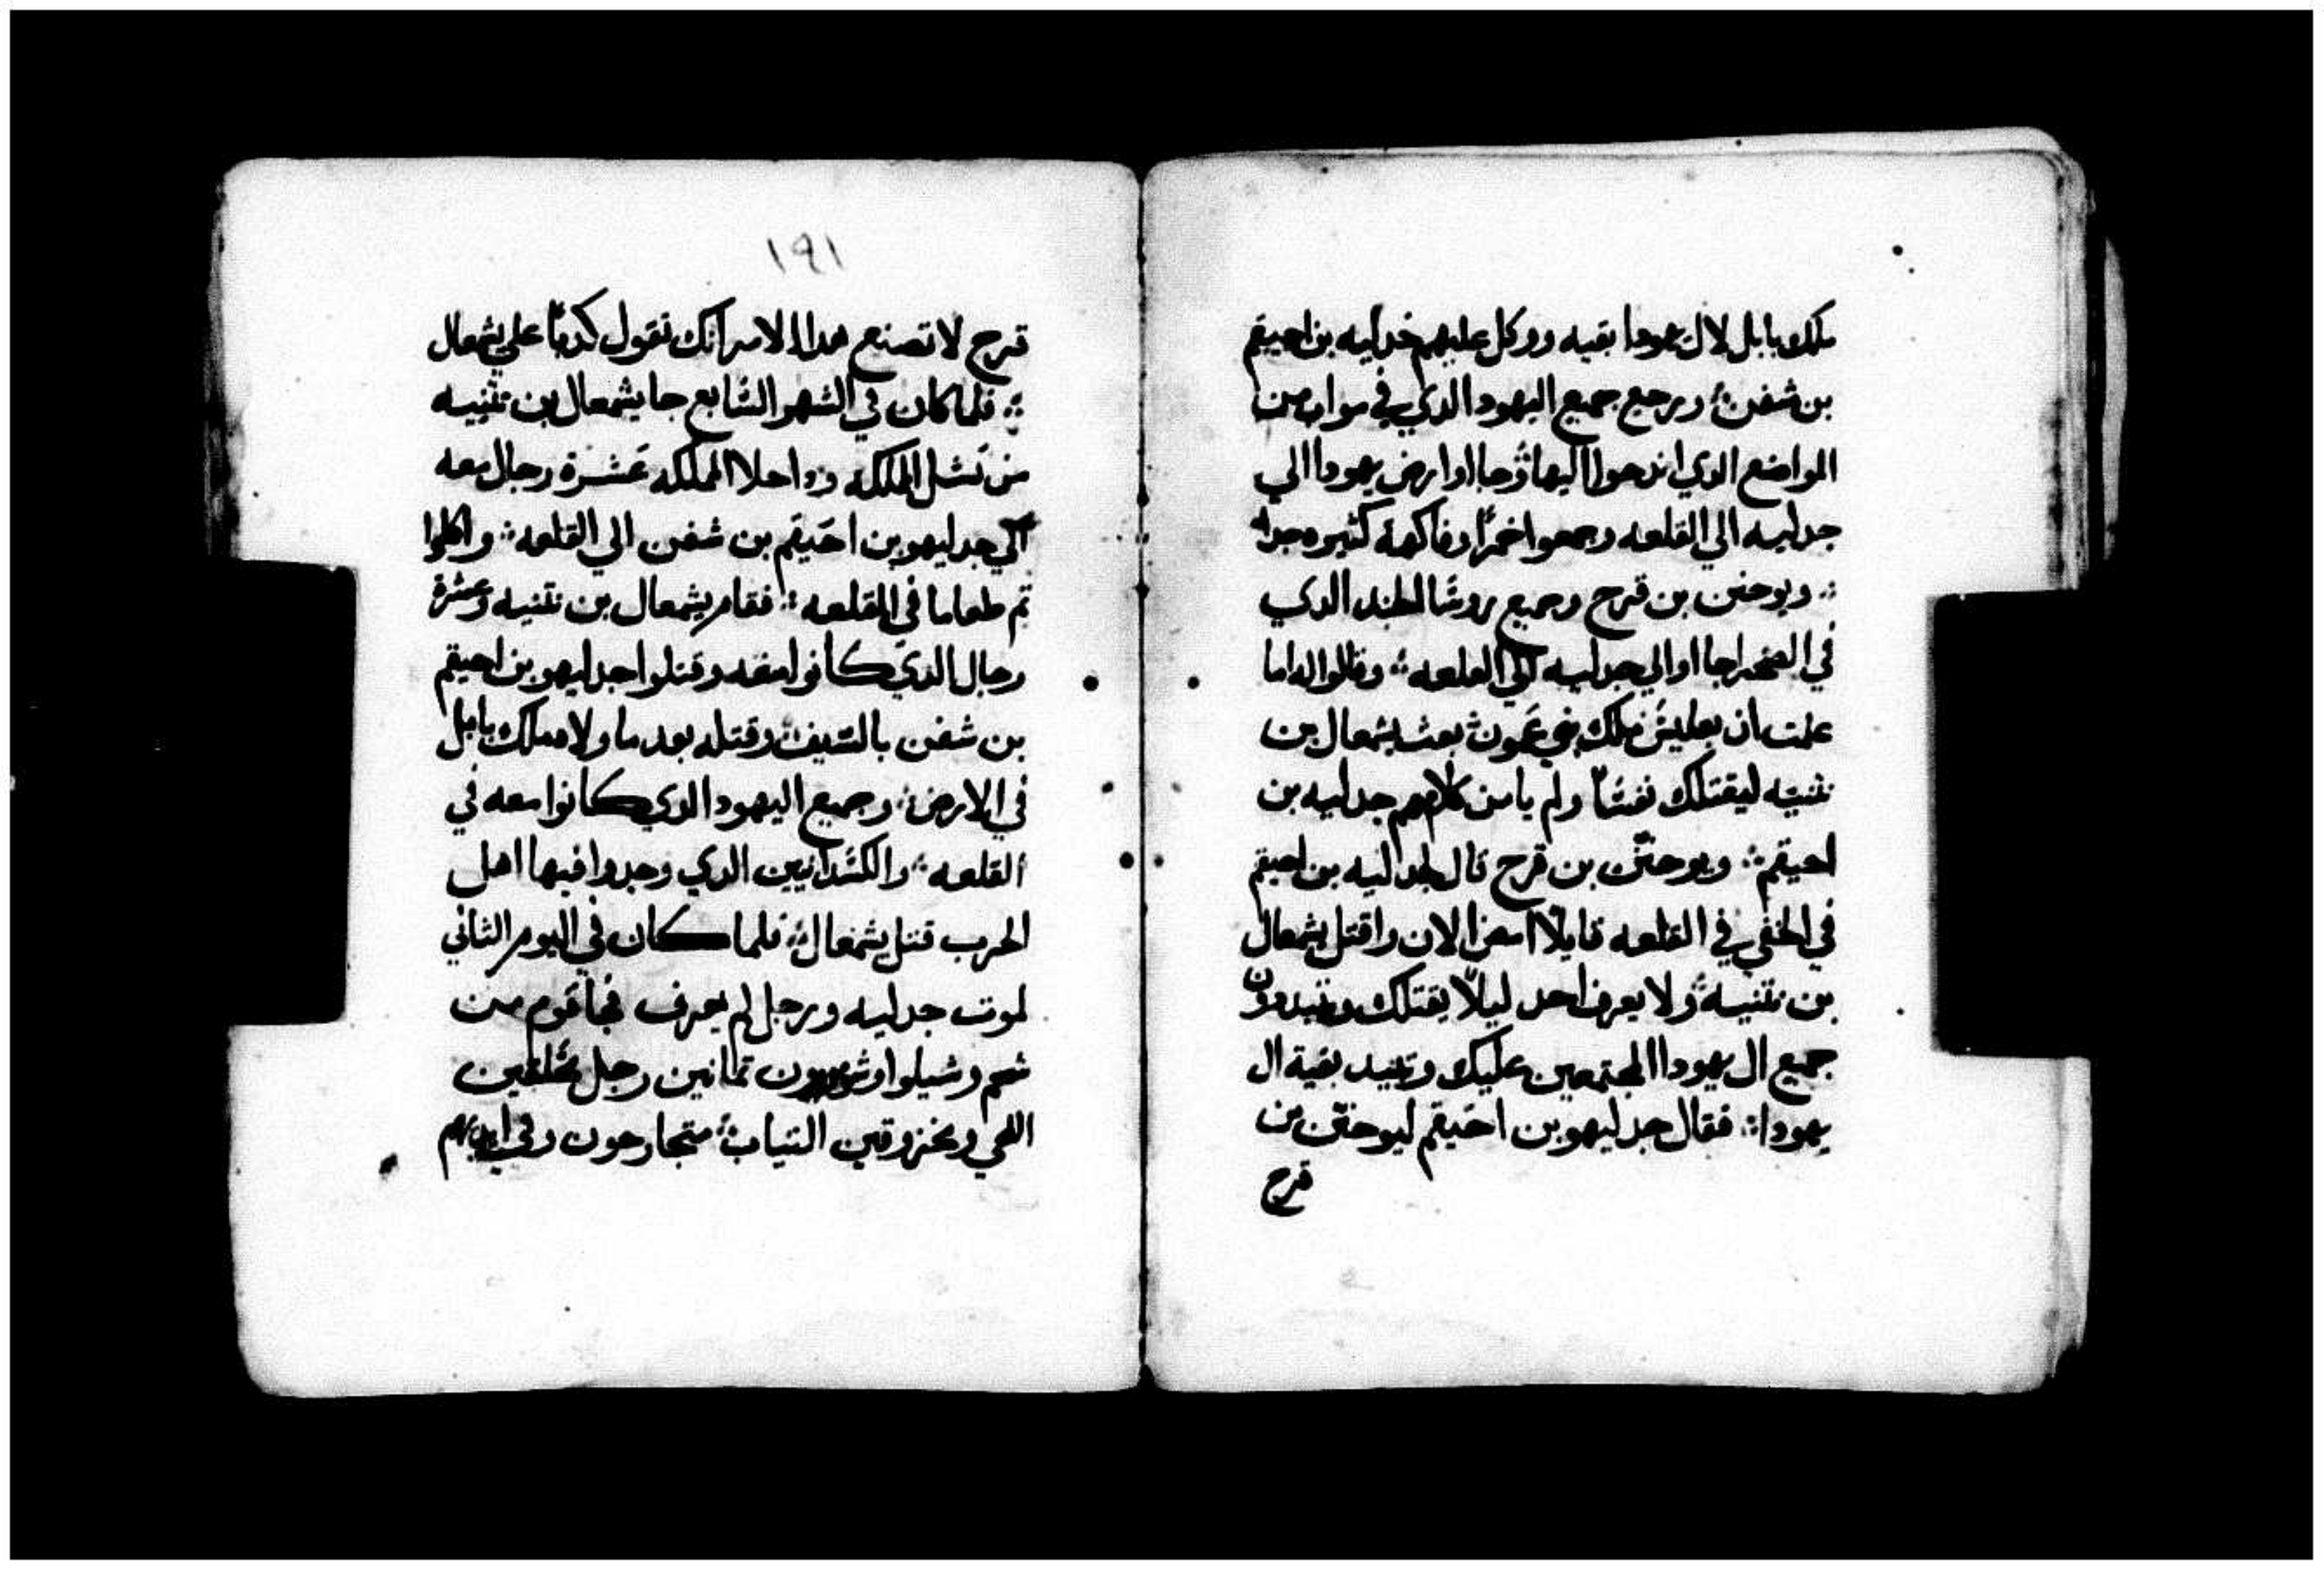 ملك بابل لال يهودا بقيه ووكل عليهم جدليه بن احيقم
بن شفن ورجع جميع اليهود الدي في مواب من
المواضع الدي اندحوا اليها وجااوا ارض يهودا الي
جدليه الي القلعه وجمعوا خمرًا وفاكهة كثيره جدا
ويوحنن بن قرح وجميع روسًا الجند الدي
في الصحرا جااوا الي جدليه الي القلعه وقالوا له اما
علمت ان بعليس ملك بني عمون بعث يشمعال بن
نتنيه ليقتلك نفسًا ولم يامن كلامهم جدليه بن
احيقم ويوحنن بن قرح قال لجدليه بن احيقم
في الخفي في القلعه قايلًا امض الان واقتل يشمعال
بن نتنيه ولا يعرف احد ليلًا يقتلك ويتبددون
جميع ال يهودا المجتمعين عليك وتبيد بقية ال
يهودا فقال جدليهو بن احيقم ليوحنن بن
قرح
١٩١
قرح لا تصنع هدا الامر انك تقول كدبًا علي يشمعال
فلما كان في الشهر السابع جا يشمعال بن نتنيه
من نسل المملكه واحلا المملكه عشرة رجال معه
الي جدليهو بن احيقم بن شفن الي القلعه واكلوا
تم طعاما في القلعه فقام يشمعال بن نتنيه وعشرة
رجال الدي كانوا معه وقتلوا جدليهو بن احيقم
بن شفن بالسيف وقتله بعد ما ولاه ملك بابل
في الارض وجميع اليهود الدي كانوا معه في
القلعه والكسدانيين الدي وجدوا فيها اهل
الحرب قتل يشمعال فلما كان في اليوم الثاني
لموت جدليه ورجل لم يعرف فجا قوم من
شحم وشيلوا وشومرون تمانين رجل محلقين
اللحي ومخزوقين التياب متجارحون وفي ايديهم